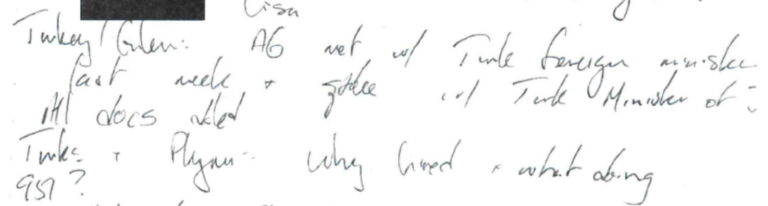 Lisa
Turkey/Gulen: AG met w/ Turk foreign minister
last week + spoke w/ Turk Minister of J
All docs added
Turks + Flynn: Why hired + what doing
951?